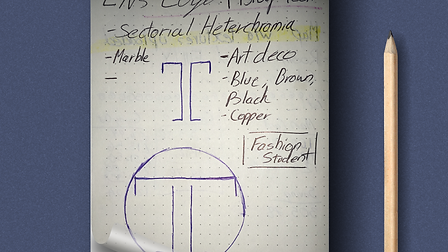 Logo
- Sectorial Heterchromia
- Marble
- Art deco
- Blue, Brown,
Black
- Copper
Fashion
Student